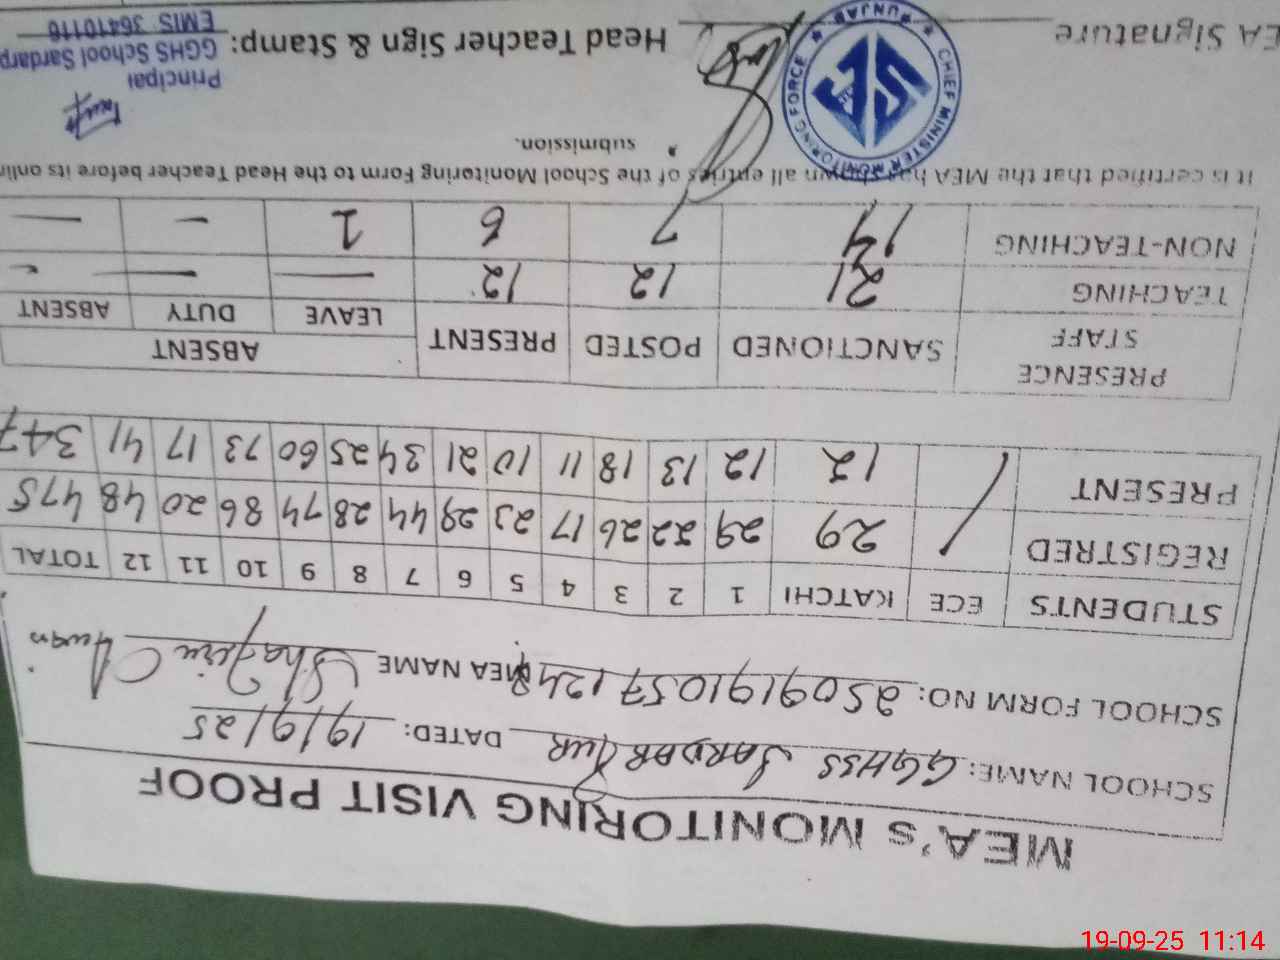 MEA's MONITORING VISIT PROOF
SCHOOL NAME: GGHSS SARDAR PUR DATED: 19/9/25
SCHOOL FORM NO: 25091910571248 MEA NAME Awan
STUDENTS ECE KATCHI 1 2 3 4 5 6 7 8 9 10 11 12 TOTAL
REGISTRED / 29 29 22 26 17 23 29 44 28 74 86 20 48 475
PRESENT 12 12 13 18 11 10 21 34 25 60 73 17 41 347
PRESENCE STAFF SANCTIONED POSTED PRESENT ABSENT
LEAVE DUTY ABSENT
TEACHING 21 12 12 — — -
NON-TEACHING 14 7 6 1 - —
It is certified that the MEA has shown all entries of the School Monitoring Form to the Head Teacher before its onlin
submission.
EA Signature Head Teacher Sign & Stamp:
CHIEF MINISTER MONITORING FORCE
PUNJAB
Principal
GGHS School Sardarp
EMIS 36410116
19-09-25 11:14